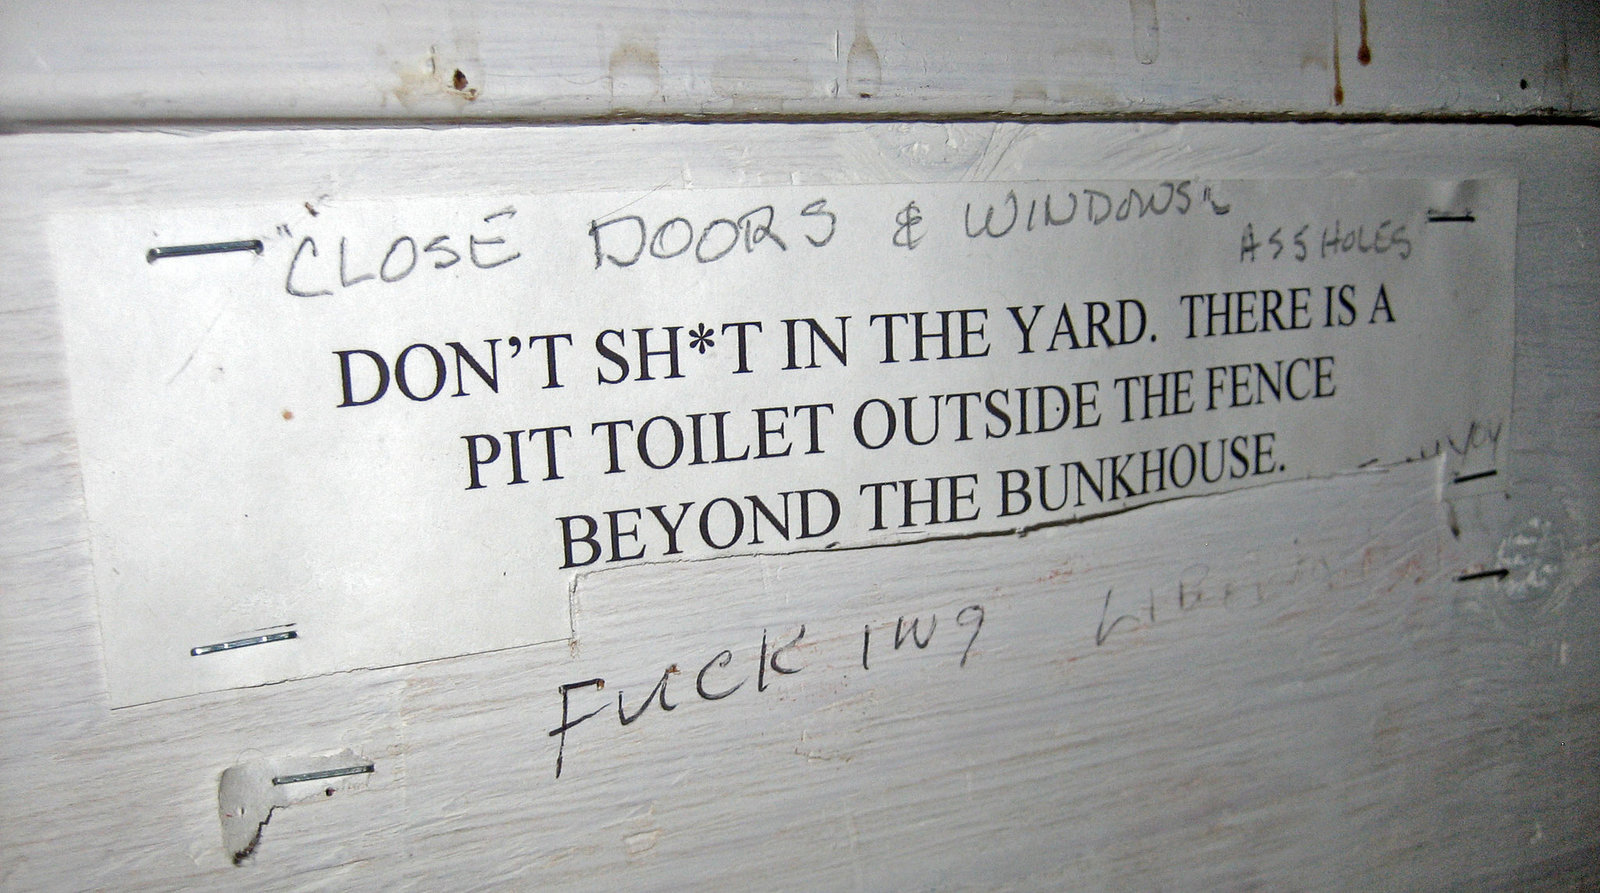 "CLOSE DOORS & WINDOWS"
ASSHOLES
DON'T SH*T IN THE YARD. THERE IS A
PIT TOILET OUTSIDE THE FENCE
BEYOND THE BUNKHOUSE.
FUCK ING